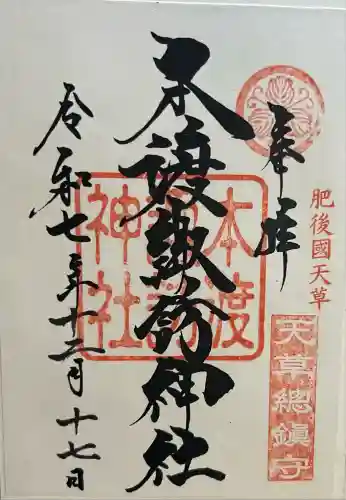 奉拝
肥後國天草
天草總鎮守
本渡諏訪神社
本渡諏訪神社
令和七年十二月十七日